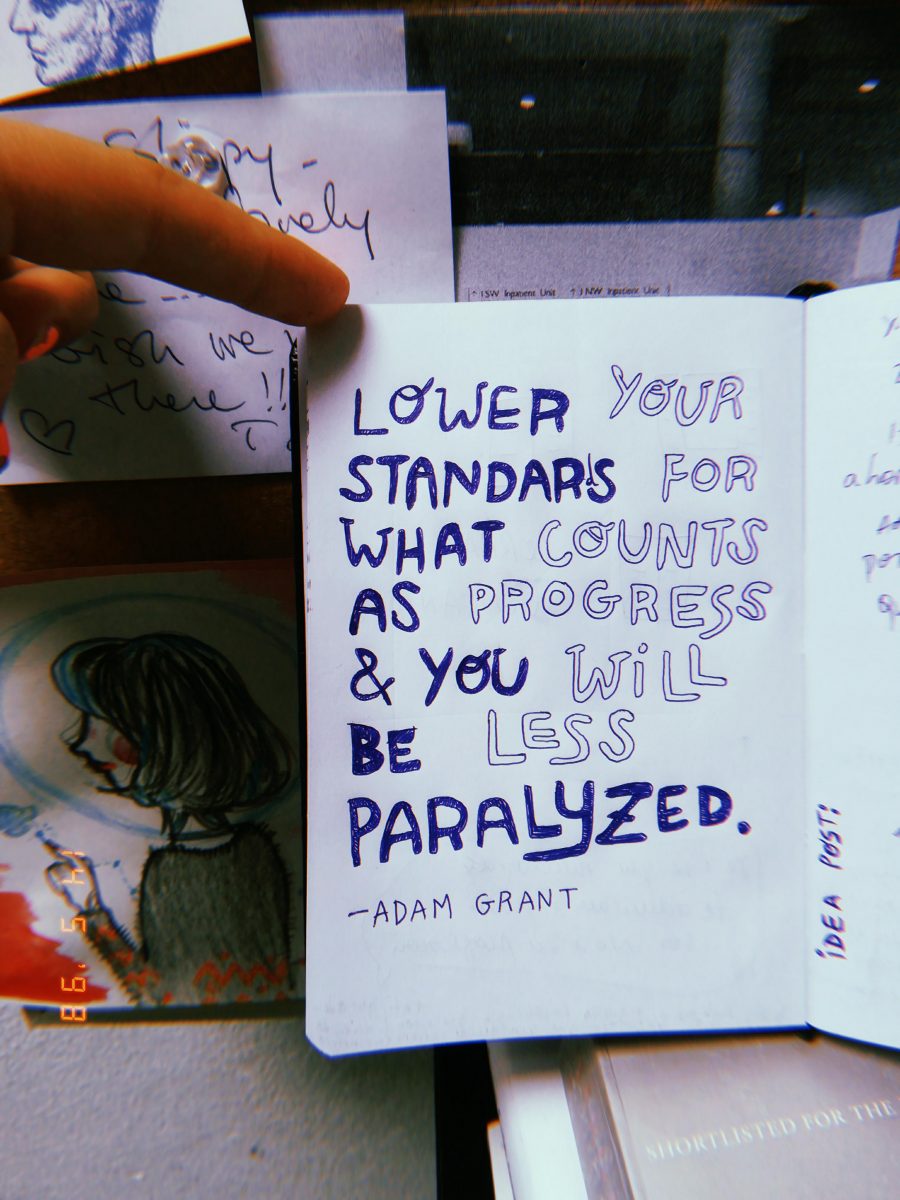 Sloppy -
lovely
wish we
there !!
↑ 1SW Inpatient Unit ↑ 1NW Inpatient Unit
LOWER YOUR
STANDARDS FOR
WHAT COUNTS
AS PROGRESS
& YOU WILL
BE LESS
PARALYZED.
-ADAM GRANT
iDEA POST:
14 5 '98
SHORTLISTED FOR THE